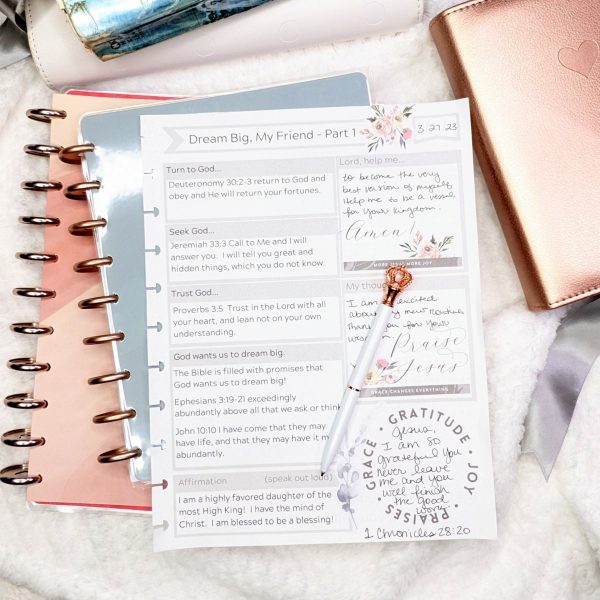 Dream Big, My Friend - Part 1
3.27.23
Turn to God...
Deuteronomy 30:2-3 return to God and
obey and He will return your fortunes.
Seek God...
Jeremiah 33:3 Call to Me and I will
answer you. I will tell you great and
hidden things, which you do not know.
Trust God...
Proverbs 3:5 Trust in the Lord with all
your heart, and lean not on your own
understanding.
God wants us to dream big.
The Bible is filled with promises that
God wants us to dream big!
Ephesians 3:19-21 exceedingly
abundantly above all that we ask or think
John 10:10 I have come that they may
have life, and that they may have it m
abundantly.
Affirmation (speak out loud)
I am a highly favored daughter of the
most High King! I have the mind of
Christ. I am blessed to be a blessing!
Lord, help me...
to become the very
best version of myself
Help me to be a vessel
for your kingdom.
Amen!
MORE JESUS MORE JOY
My thou
I am excited
about my
Thank you for your
Praise
Jesus
GRACE CHANGES EVERYTHING
GRACE • GRATITUDE • JOY • PRAISES •
Jesus,
I am so
grateful you
never leave
me and you
will finish
the good
work.
1 Chronicles 28:20